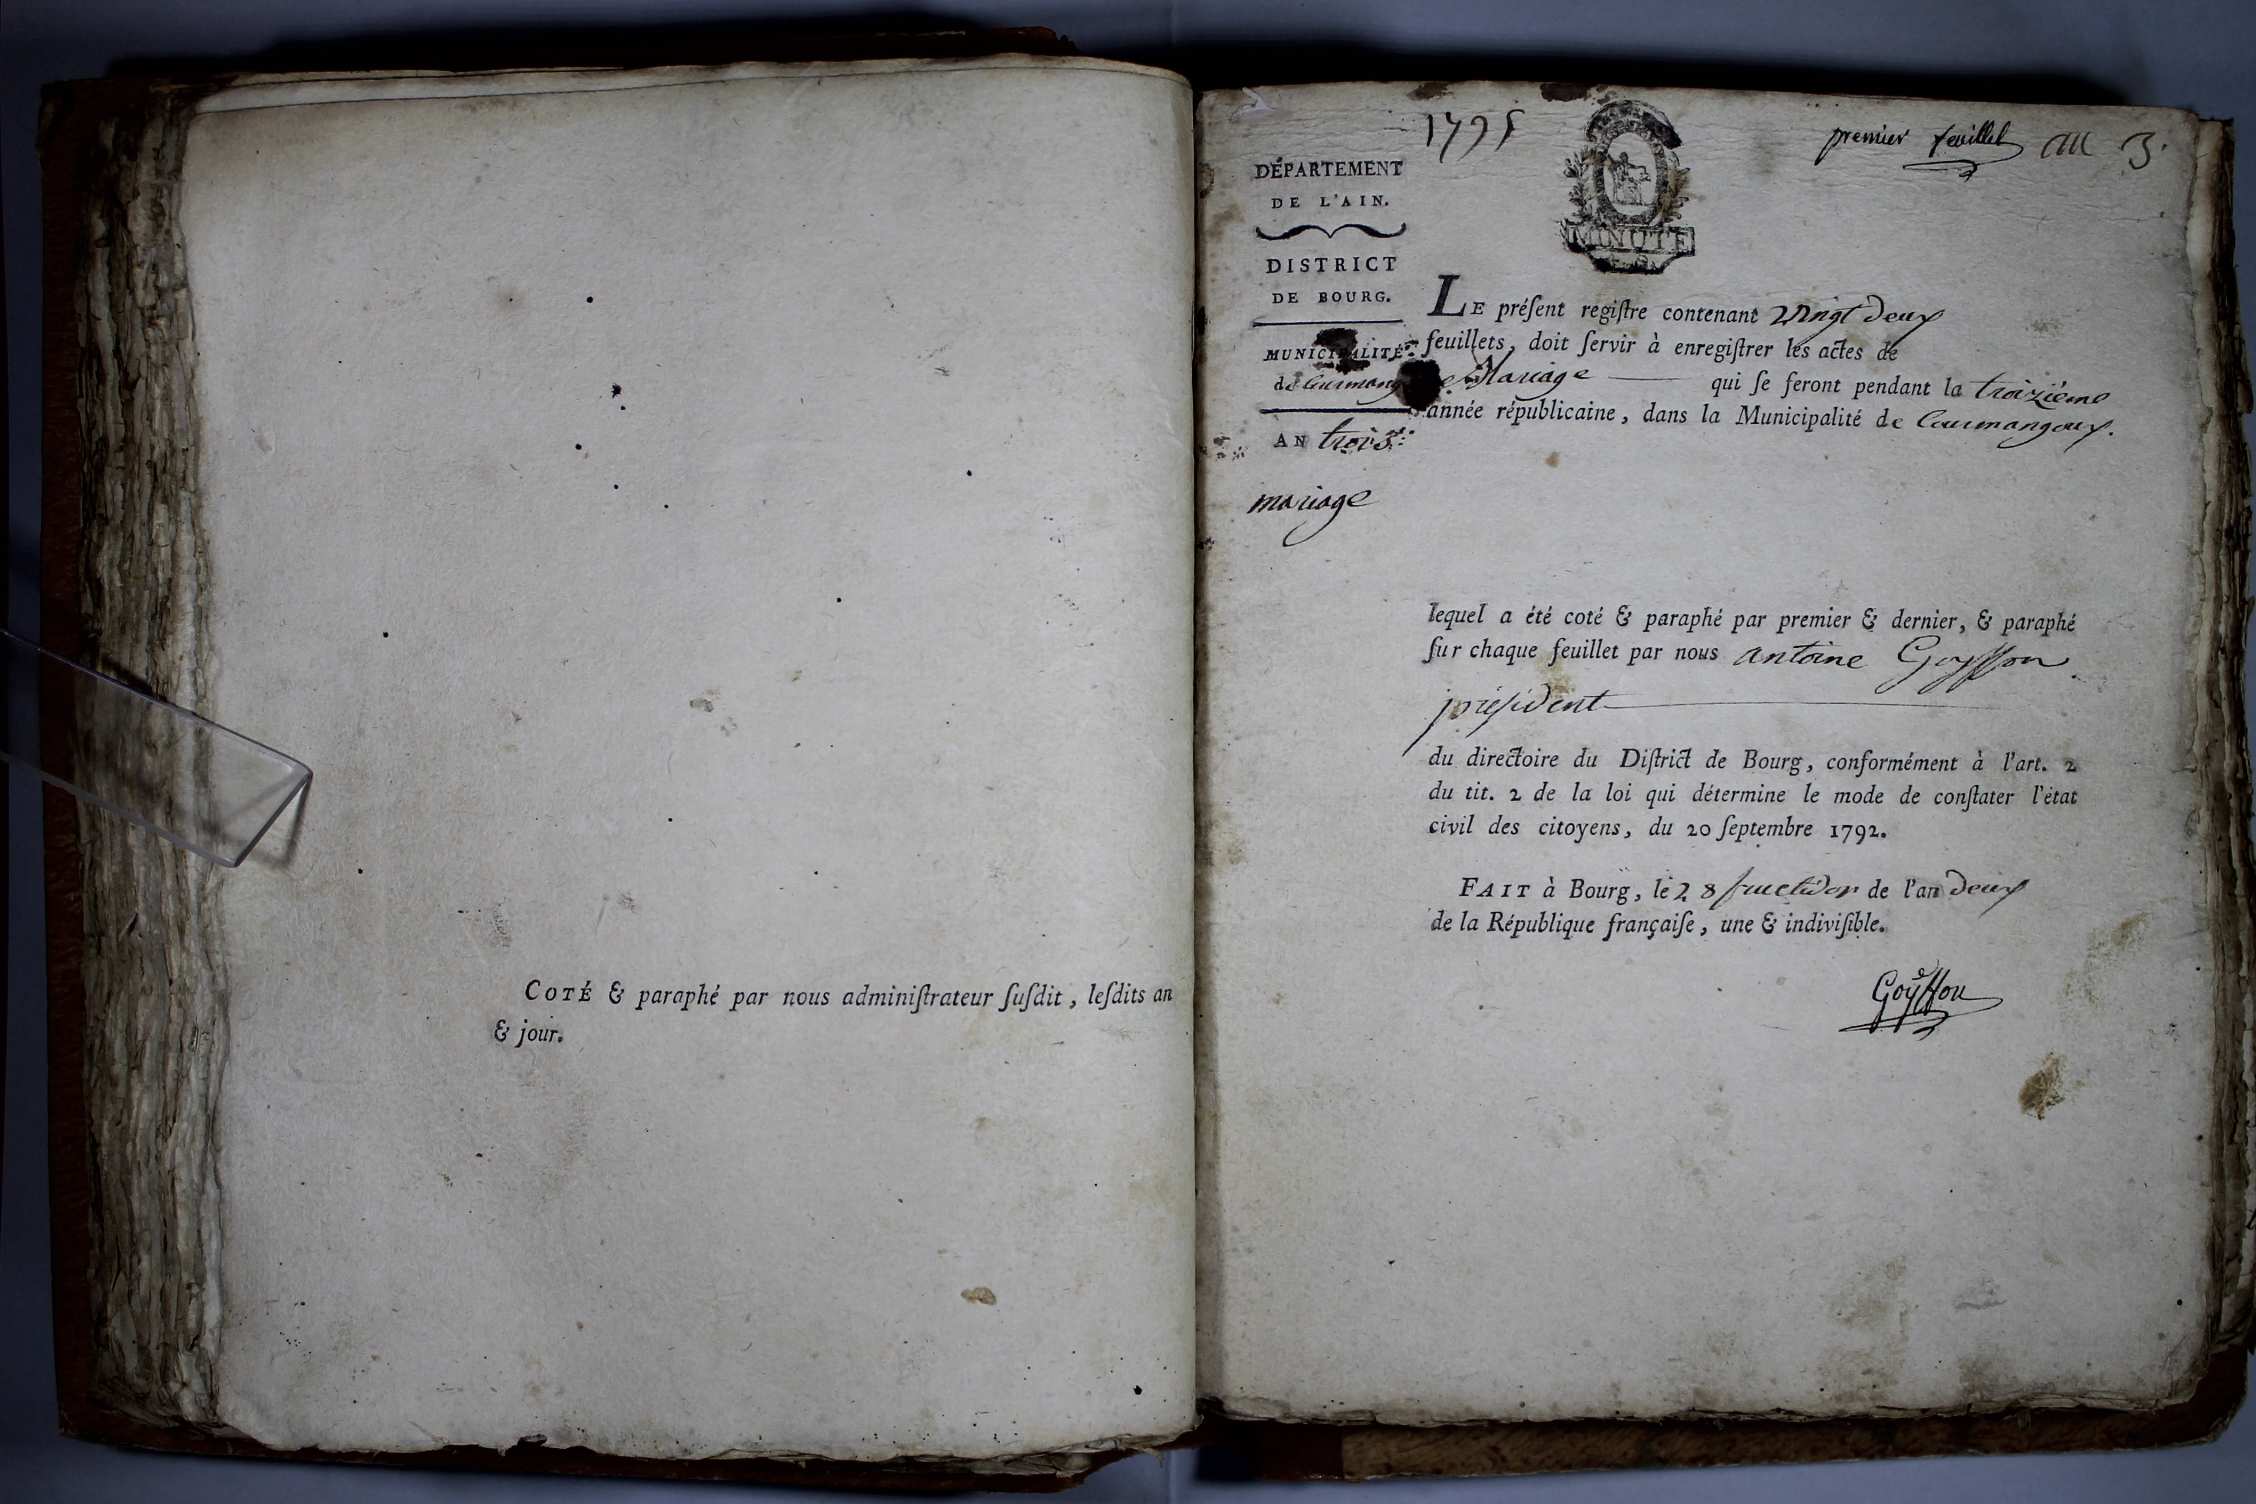 COTÉ & paraphé par nous adminiſtrateur ſuſdit, leſdits an
& jour.
1795
premier feuillet an 3.
DÉPARTEMENT
DE L'AIN.
DISTRICT
DE BOURG.
MUNICIPALITÉ
de Courmangoux
AN trois
mariage
MINUTE
LE préſent regiſtre contenant vingt deux
feuillets, doit ſervir à enregiſtrer les actes de
Mariage qui ſe feront pendant la troizième
année républicaine, dans la Municipalité de Courmangoux.
lequel a été coté & paraphé par premier & dernier, & paraphé
ſur chaque feuillet par nous antoine Goyffon
préſident
du directoire du Diſtrict de Bourg, conformément à l'art. 2
du tit. 2 de la loi qui détermine le mode de conſtater l'état
civil des citoyens, du 20 ſeptembre 1792.
FAIT à Bourg, le 28 fructidor de l'an deux
de la République françaiſe, une & indiviſible.
Goÿffon